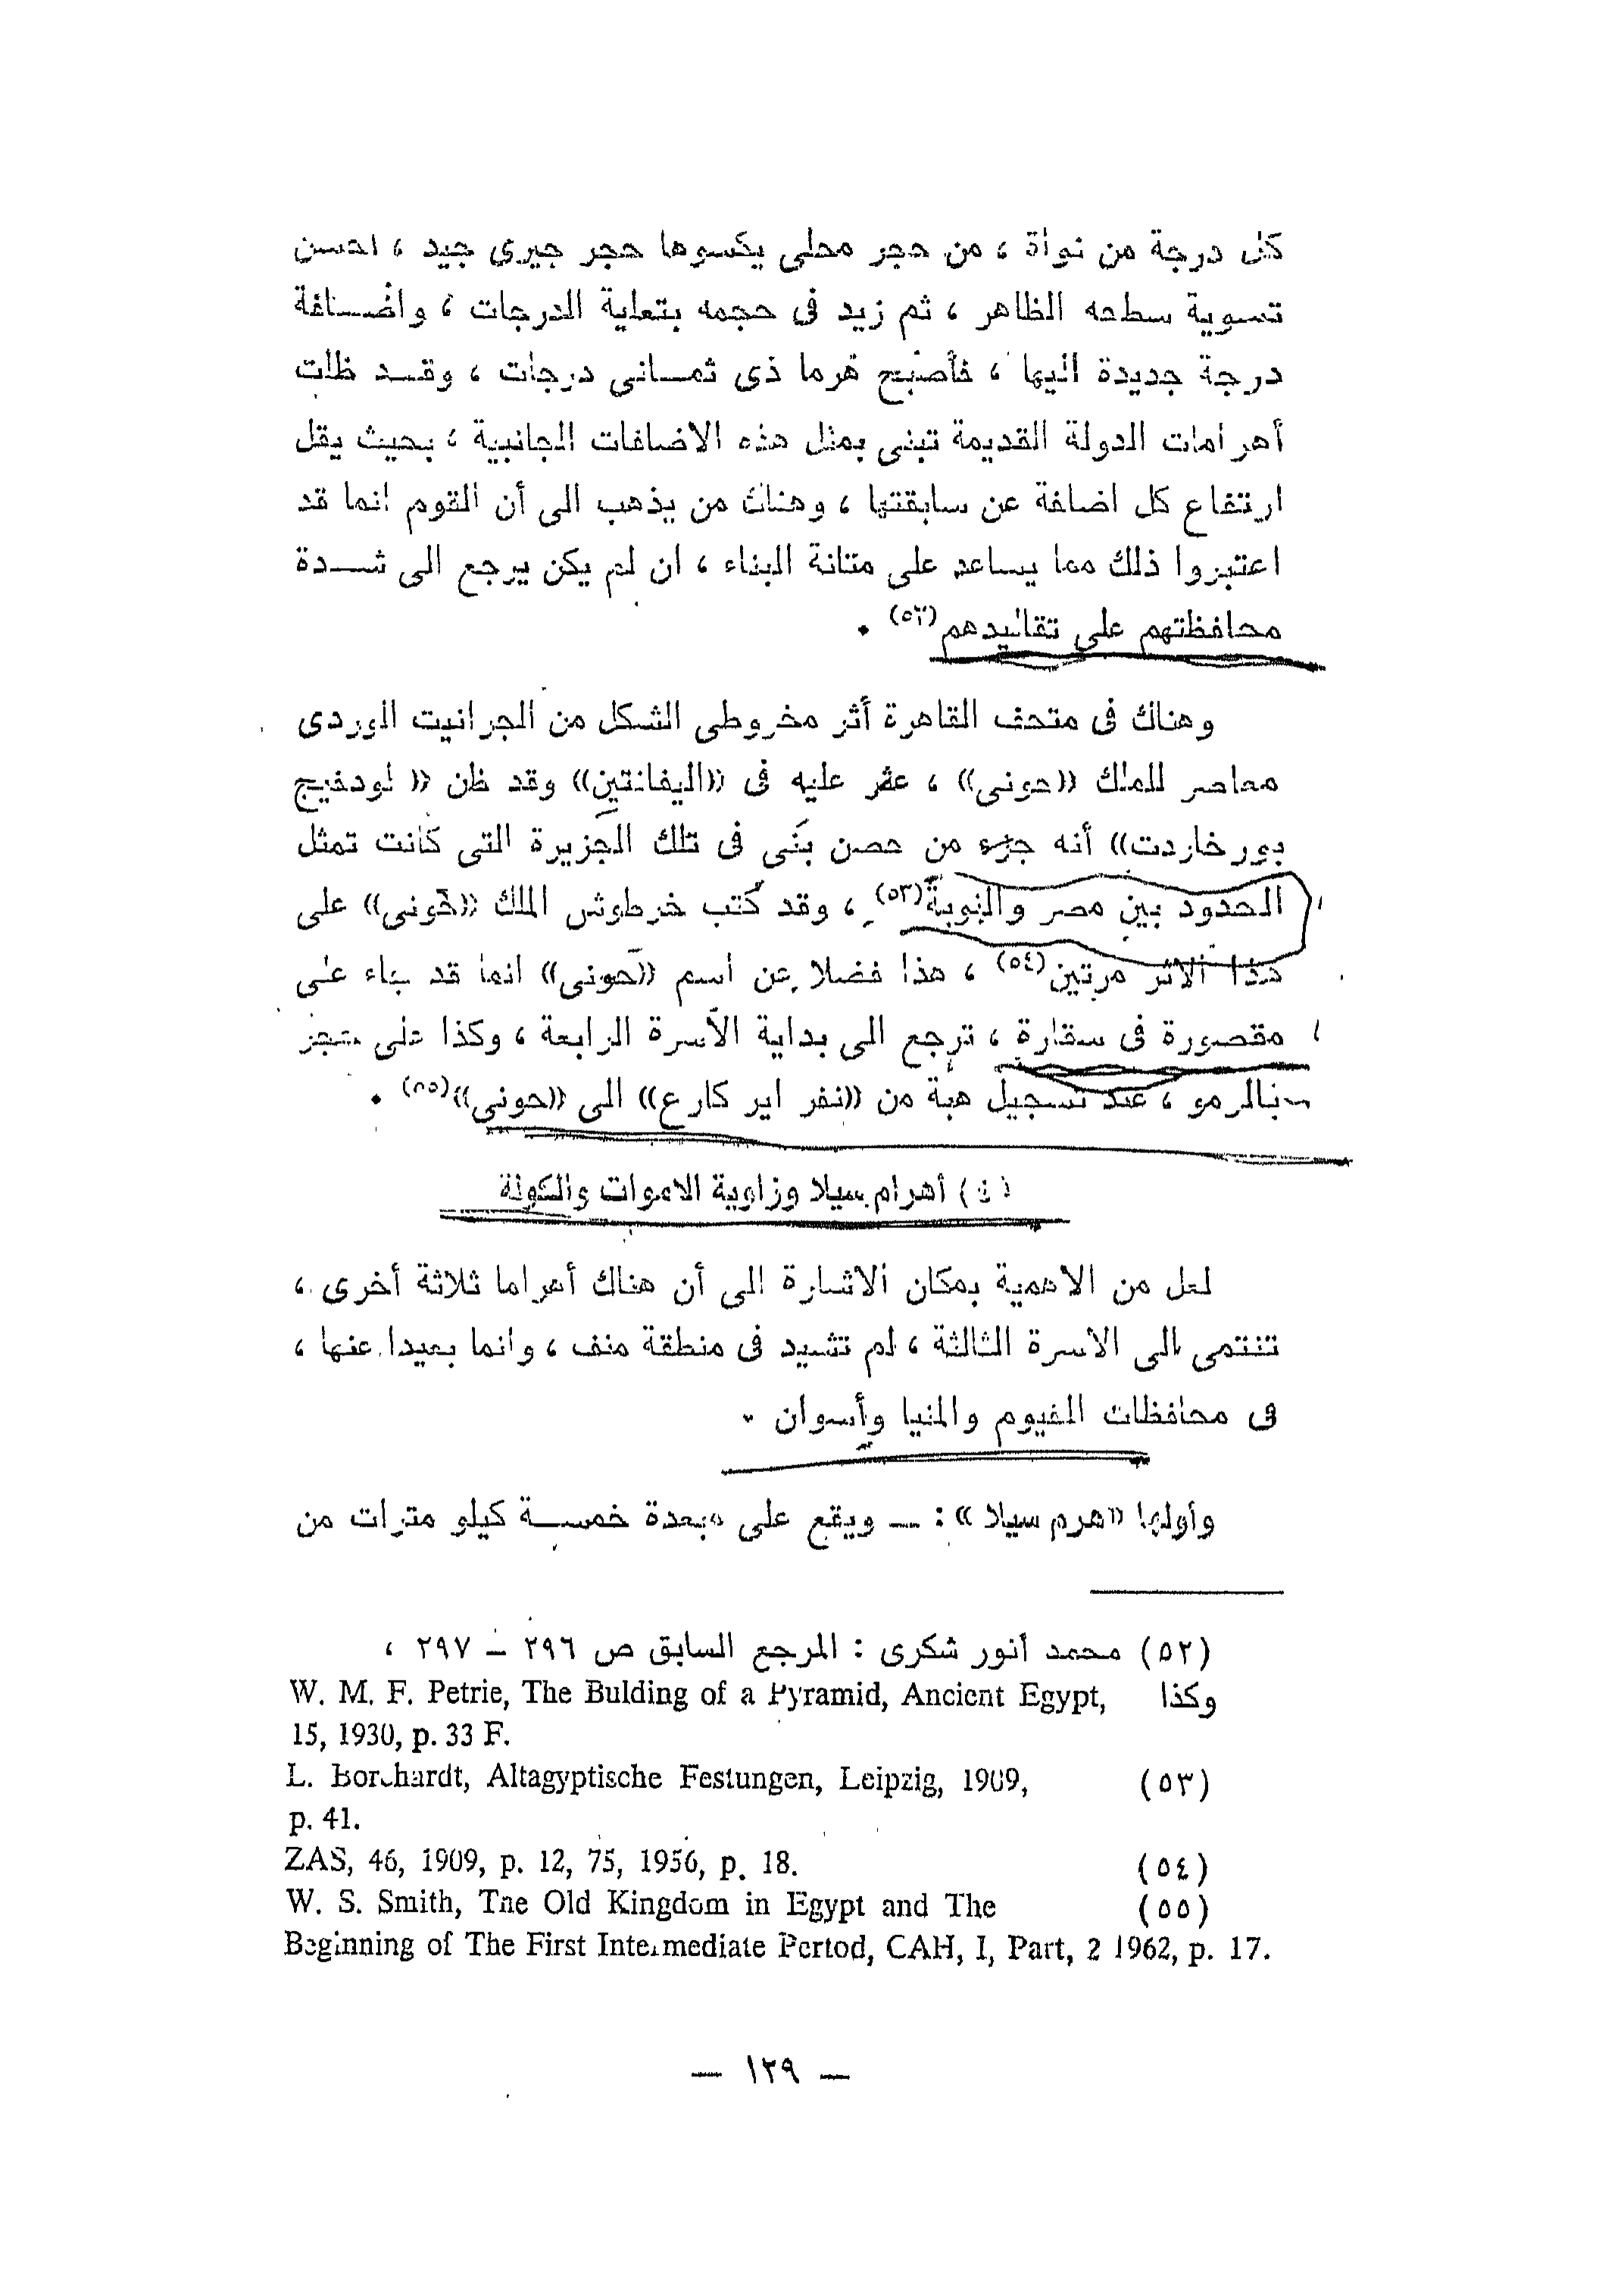 كل درجة من نواة ، من حجر محلى يكسوها حجر جيرى جيد ، احسن
تسوية سطحه الظاهر ، ثم زيد فى حجمه بتعلية الدرجات ، واضافة
درجة جديدة اليها ، فأصبح هرما ذى ثمانى درجات ، وقد ظلت
أهرامات الدولة القديمة تبنى بمثل هذه الاضافات الجانبية ، بحيث يقل
ارتفاع كل اضافة عن سابقتها ، وهناك من يذهب الى أن القوم انما قد
اعتبروا ذلك مما يساعد على متانة البناء ، ان لم يكن يرجع الى شدة
محافظتهم على تقاليدهم(٥٢) .
وهناك فى متحف القاهرة أثر مخروطى الشكل من الجرانيت الوردى
معاصر للملك «حونى» ، عثر عليه فى «اليفانتين» وقد ظن « لودفيج
بورخاردت» أنه جزء من حصن بنى فى تلك الجزيرة التى كانت تمثل
الحدود بين مصر والنوبة(٥٣) ، وقد كتب خرطوش الملك «حونى» على
هذا الاثر مرتين(٥٤) ، هذا فضلا عن اسم «حونى» انما قد جاء على
مقصورة فى سقارة ، ترجع الى بداية الأسرة الرابعة ، وكذا على حجر
بالرمو ، عند تسجيل هبة من «نفر اير كارع» الى «حونى»(٥٥) .
(٤) أهرام سيلا وزاوية الاموات والكولة
لعل من الاهمية بمكان الاشارة الى أن هناك أهراما ثلاثة أخرى ،
تنتمى الى الاسرة الثالثة ، لم تشيد فى منطقة منف ، وانما بعيدا عنها ،
فى محافظات الفيوم والمنيا وأسوان .
وأولها «هرم سيلا » : ـ ويقع على مبعدة خمسة كيلو مترات من
(٥٢) محمد أنور شكرى : المرجع السابق ص ٢٩٦ ـ ٢٩٧ ،
وكذا W. M. F. Petrie, The Bulding of a Pyramid, Ancient Egypt,
15, 1930, p. 33 F.
(٥٣) L. Borchardt, Altagyptische Festungen, Leipzig, 1909,
p. 41.
(٥٤) ZAS, 46, 1909, p. 12, 75, 1956, p. 18.
(٥٥) W. S. Smith, The Old Kingdom in Egypt and The
Beginning of The First Intermediate Pertod, CAH, I, Part, 2 1962, p. 17.
— ١٢٩ —